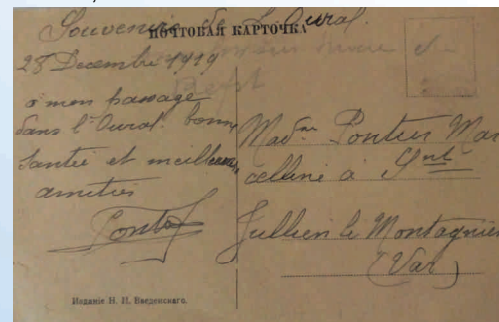 Souvenir de l'Oural
ПОЧТОВАЯ КАРТОЧКА
28 Decembre 1919
a mon passage
dans l'Oural. bonne
Santée et meilleures
amities
Ponte
Madme Ponteu Mar
celline à Snt
Jullien le Montagnier
(Var)
Изданіе Н. И. Введенскаго.